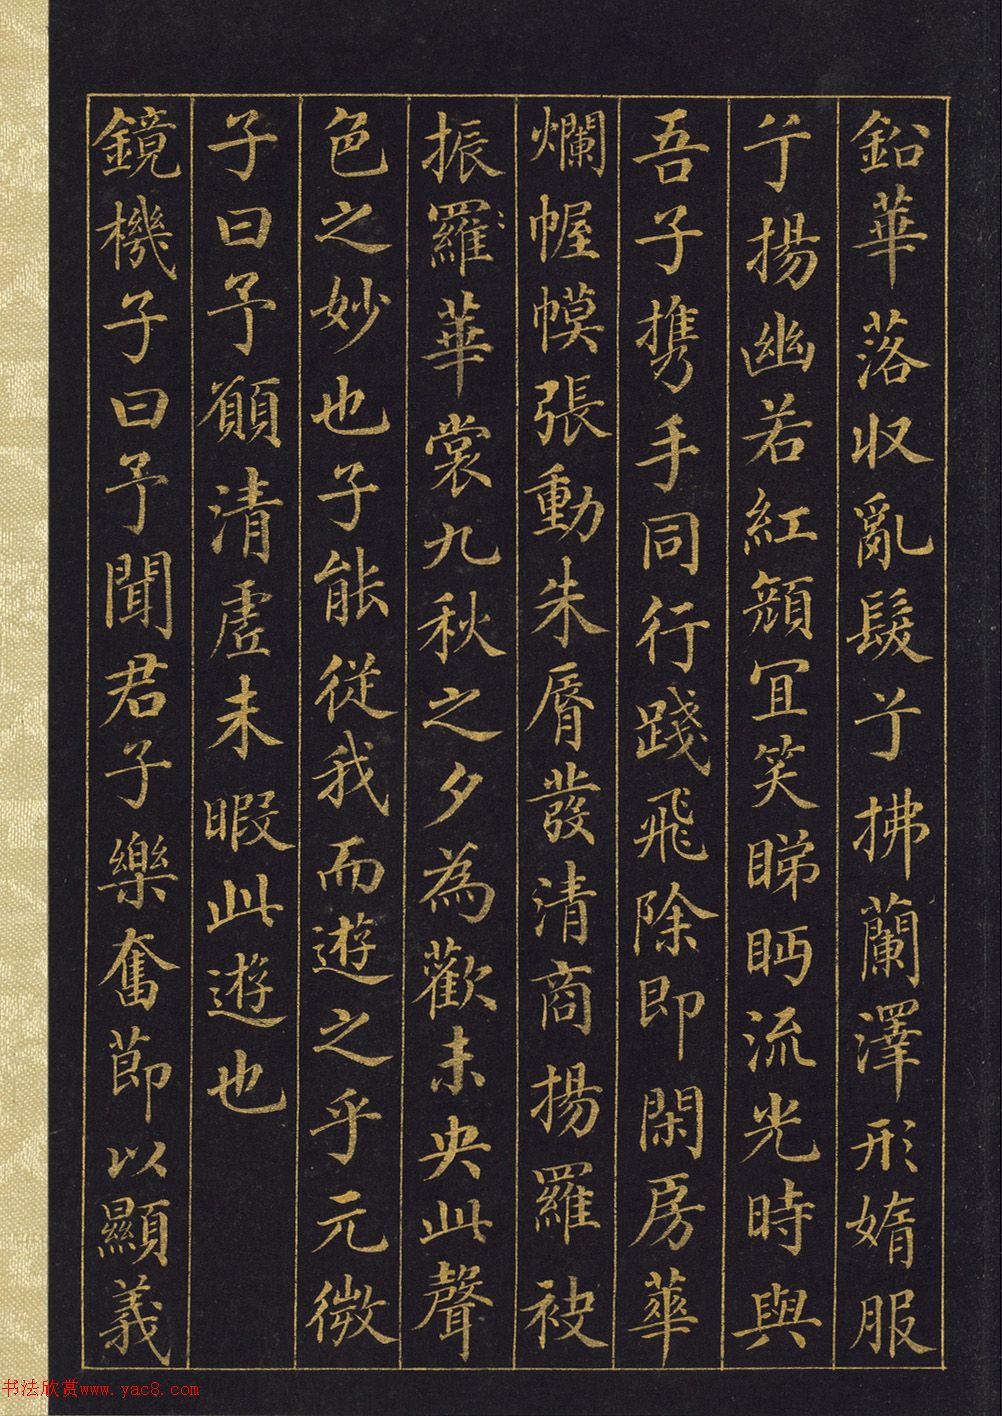 鉛華落收亂髮兮拂蘭澤形媠服
兮揚幽若紅顏宜笑睇眄流光時與
吾子攜手同行踐飛除即閑房華
爛幄幙張動朱脣發清商揚羅袂
振羅華裳九秋之夕為歡未央此聲
色之妙也子能從我而遊之乎元微
子曰予願清虛未暇此遊也
鏡機子曰予聞君子樂奮節以顯義
书法欣赏www.yac8.com